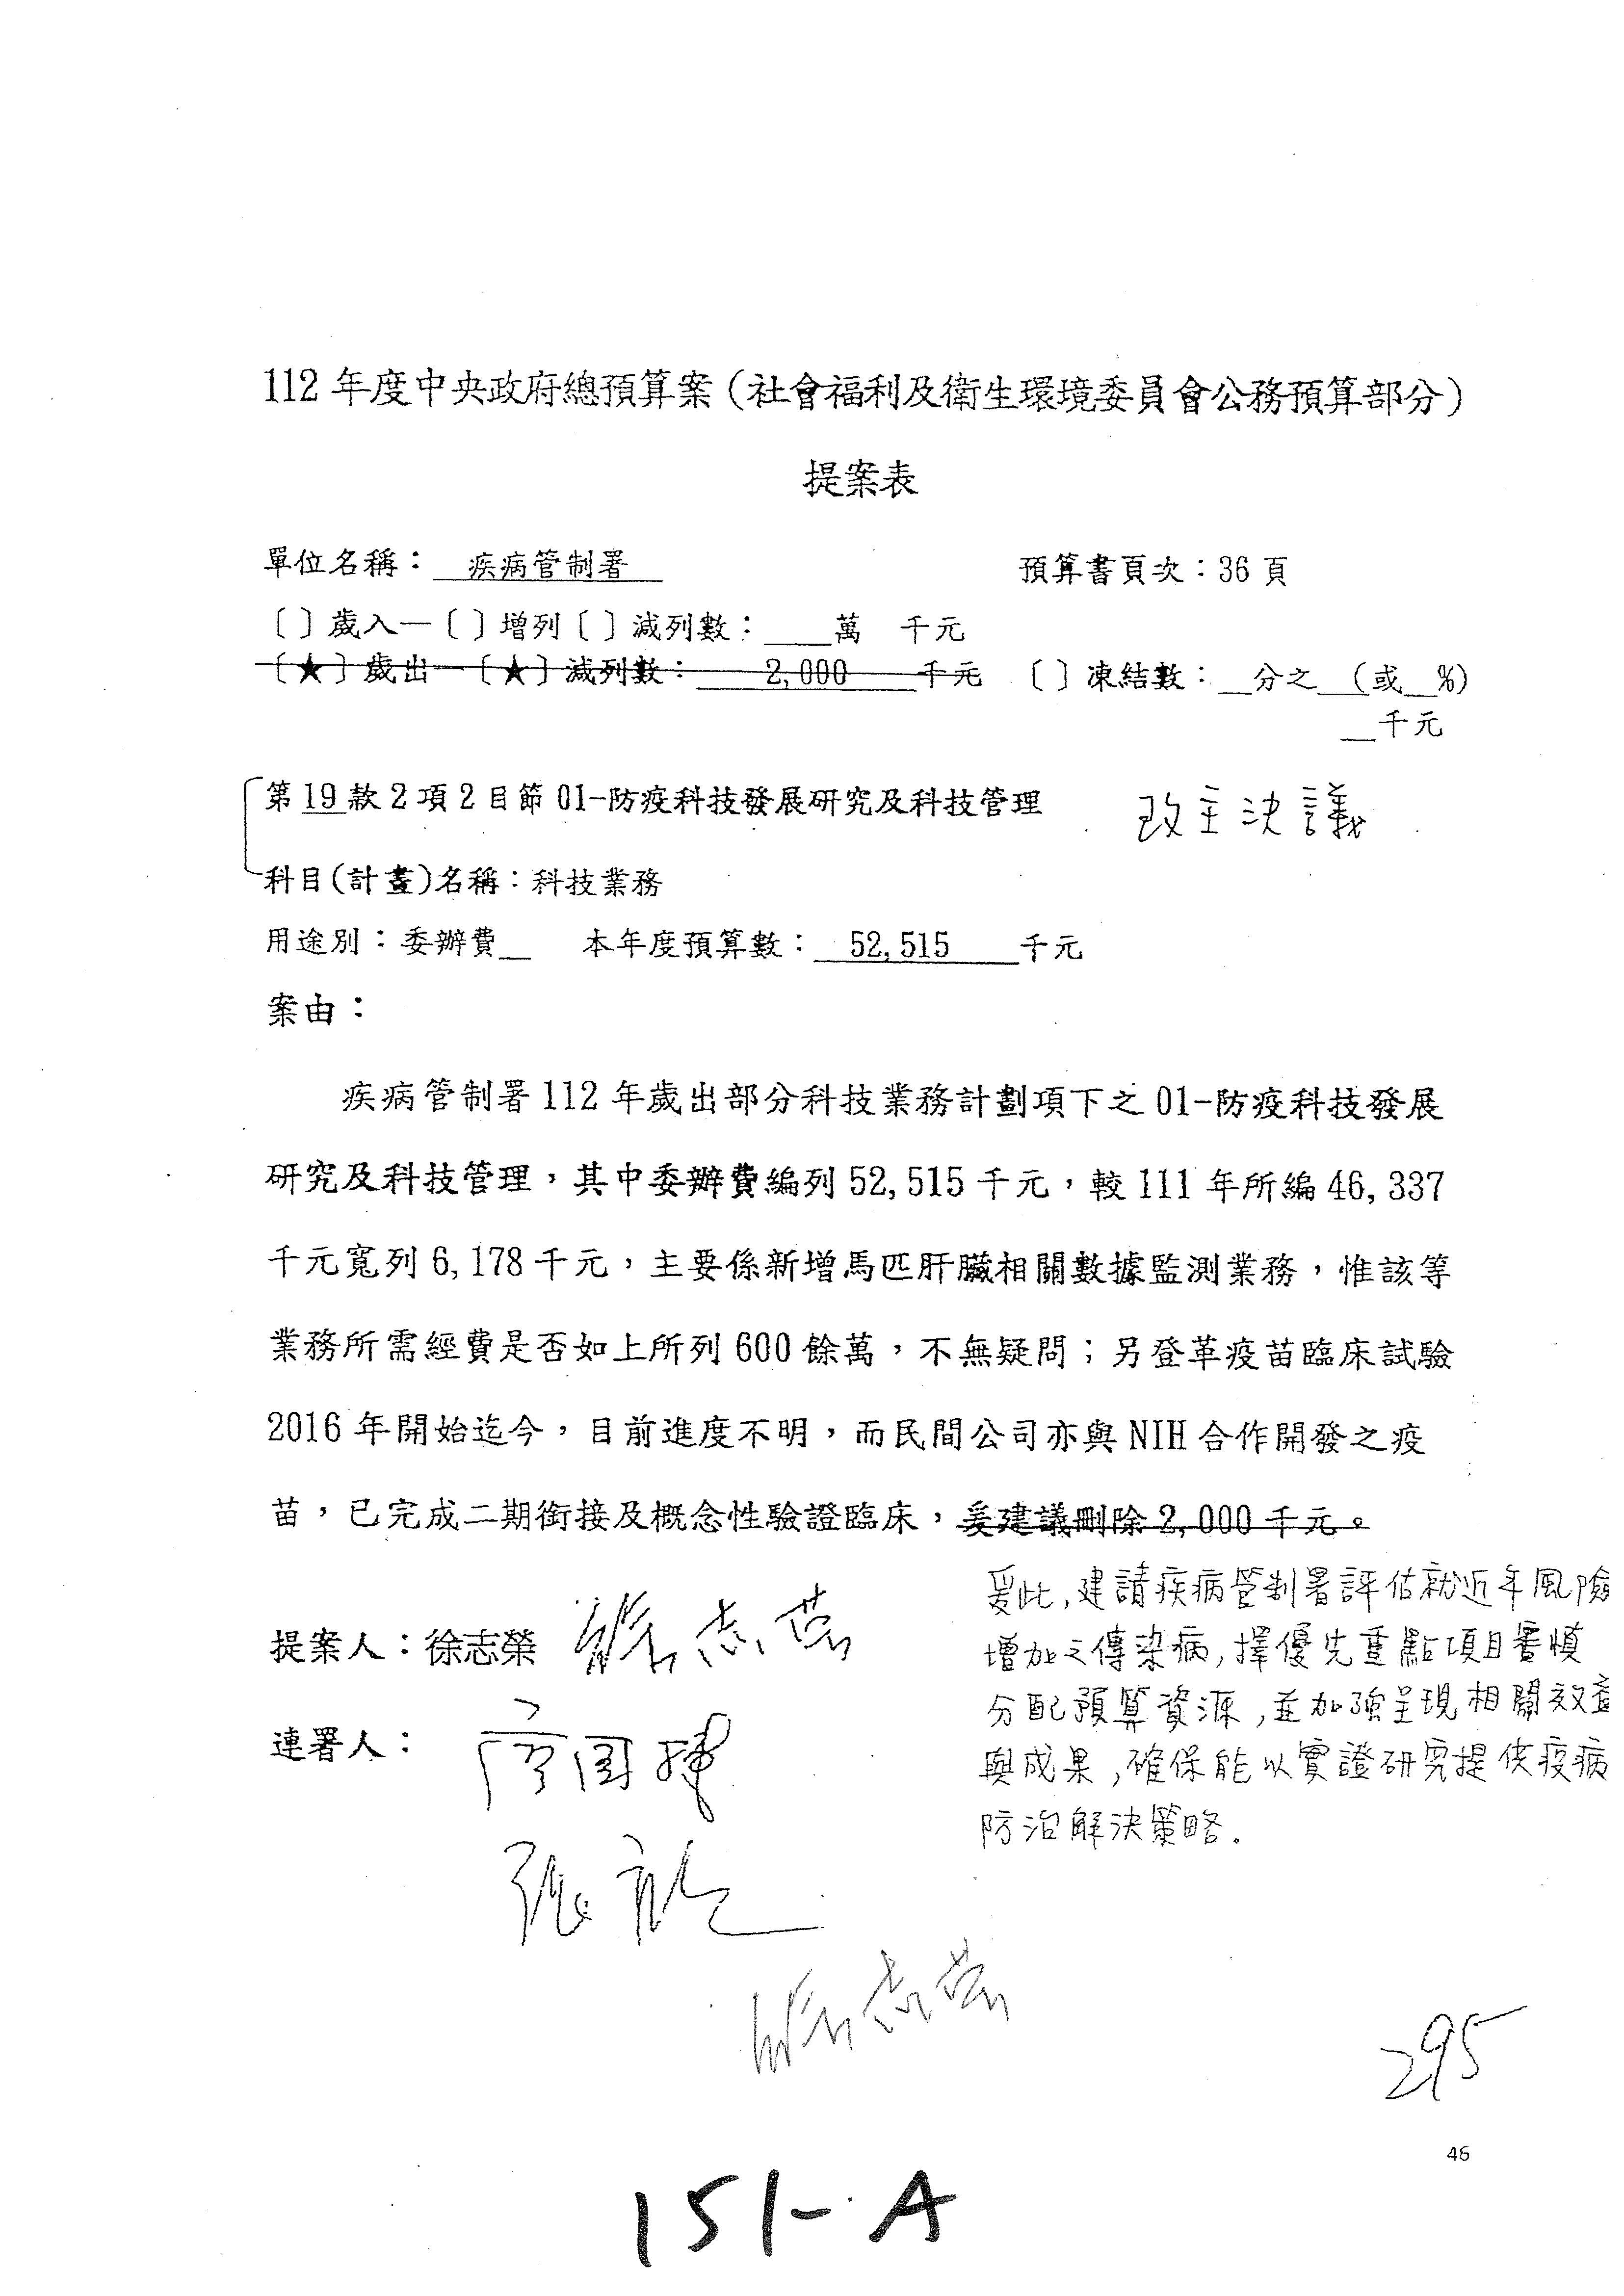 112 年度中央政府總預算案（社會福利及衛生環境委員會公務預算部分）
提案表
單位名稱： 疾病管制署 預算書頁次：36 頁
〔〕歲入—〔〕增列〔〕減列數：____萬 千元
〔★〕歲出—〔★〕減列數： 2,000 千元 〔〕凍結數：__分之__(或__%)
__千元
第 19 款 2 項 2 目節 01-防疫科技發展研究及科技管理 改主決議
科目(計畫)名稱：科技業務
用途別：委辦費__ 本年度預算數： 52,515 千元
案由：
疾病管制署 112 年歲出部分科技業務計劃項下之 01-防疫科技發展
研究及科技管理，其中委辦費編列 52,515 千元，較 111 年所編 46,337
千元寬列 6,178 千元，主要係新增馬匹肝臟相關數據監測業務，惟該等
業務所需經費是否如上所列 600 餘萬，不無疑問；另登革疫苗臨床試驗
2016 年開始迄今，目前進度不明，而民間公司亦與 NIH 合作開發之疫
苗，已完成二期銜接及概念性驗證臨床，爰建議刪除 2,000 千元。
爰此,建請疾病管制署評估就近年風險
增加之傳染病,擇優先重點項目審慎
分配預算資源,並加強呈現相關效益
與成果,確保能以實證研究提供疫病
防治解決策略。
提案人：徐志榮 徐志榮
連署人：
徐志榮
295
46
151-A